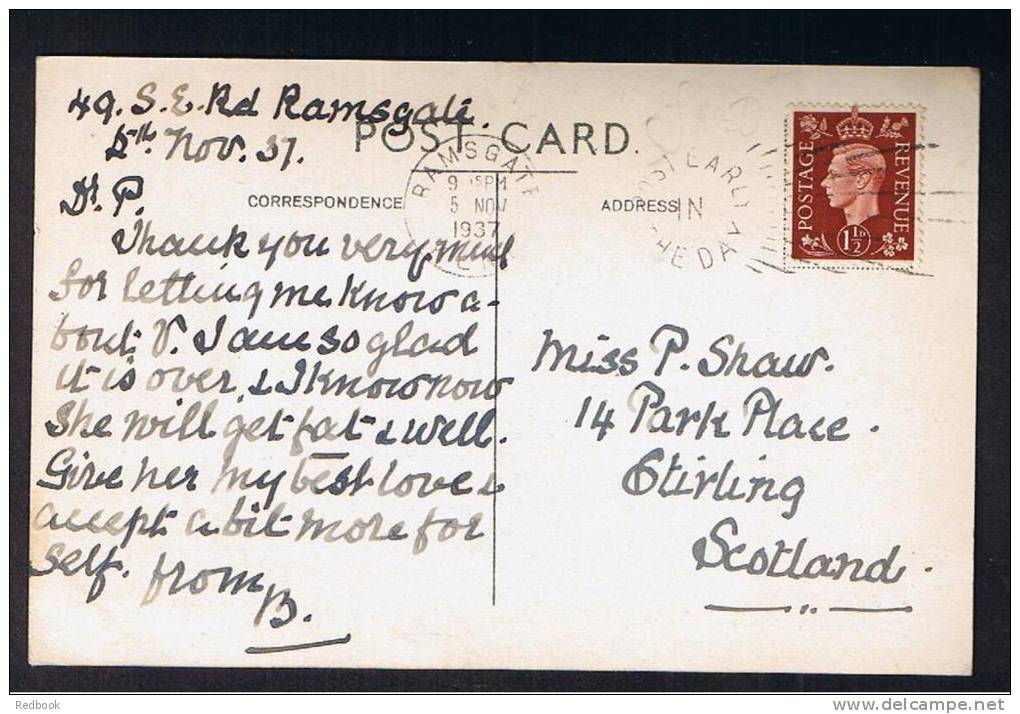 49. S. E. Rd Ramsgate.
5th Nov. 37.
POST CARD.
CORRESPONDENCE
ADDRESS
RAMSGATE
9 15PM
5 NOV
1937
POST EARLY
IN
THE DAY
POSTAGE
REVENUE
1½D
Dr. P.
Thank you very much
for letting me know a-
bout V. I am so glad
it is over, & I know now
she will get fat & well.
Give her my best love &
accept a bit more for
self. from
B.
Miss P. Shaw.
14 Park Place.
Stirling
Scotland.
Redbook
delcampe.net